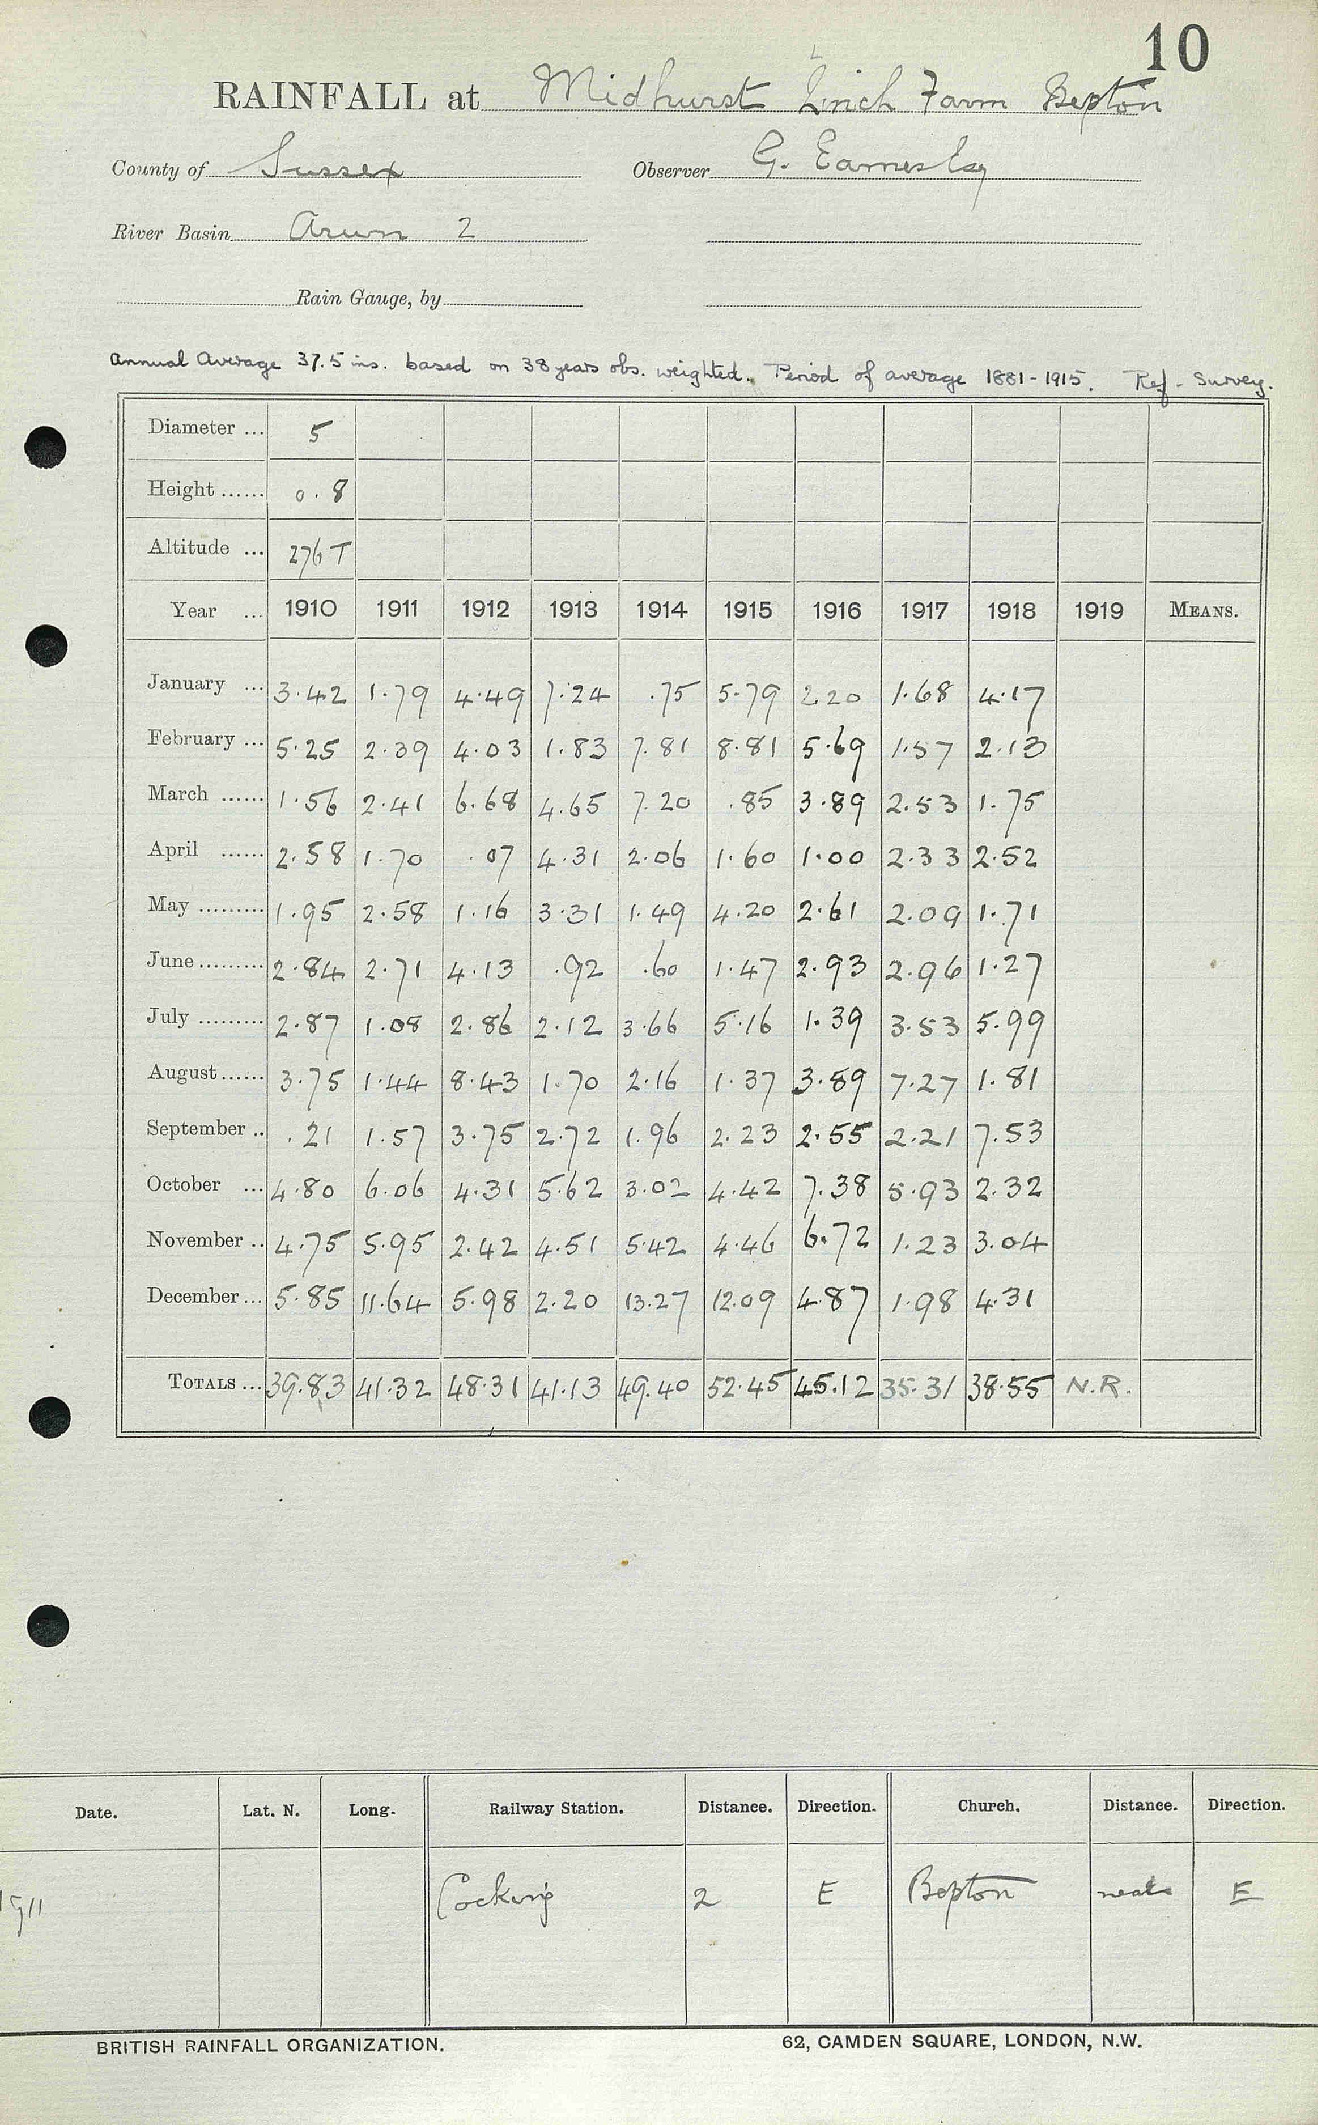 10
RAINFALL at Midhurst Linch Farm Bepton
County of Sussex Observer G. Eames Esq
River Basin Arun 2
Rain Gauge, by
Annual Average 37.5 ins. based on 38 years obs. weighted. Period of average 1881-1915. Ref - Survey.
Diameter ... 5
Height ...... 0.8
Altitude ... 276 T
Year ... 1910 1911 1912 1913 1914 1915 1916 1917 1918 1919 MEANS.
January ... 3.42 1.79 4.49 7.24 .75 5.79 2.20 1.68 4.17
February ... 5.25 2.39 4.03 1.83 7.81 8.81 5.69 1.57 2.13
March ...... 1.56 2.41 6.68 4.65 7.20 .85 3.89 2.53 1.75
April ...... 2.58 1.70 .07 4.31 2.06 1.60 1.00 2.33 2.52
May ......... 1.95 2.58 1.16 3.31 1.49 4.20 2.61 2.09 1.71
June ......... 2.84 2.71 4.13 .92 .60 1.47 2.93 2.96 1.27
July ......... 2.87 1.08 2.86 2.12 3.66 5.16 1.39 3.53 5.99
August ...... 3.75 1.44 8.43 1.70 2.16 1.37 3.89 7.27 1.81
September .. .21 1.57 3.75 2.72 1.96 2.23 2.55 2.21 7.53
October ... 4.80 6.06 4.31 5.62 3.02 4.42 7.38 5.93 2.32
November .. 4.75 5.95 2.42 4.51 5.42 4.46 6.72 1.23 3.04
December ... 5.85 11.64 5.98 2.20 13.27 12.09 4.87 1.98 4.31
TOTALS ... 39.83 41.32 48.31 41.13 49.40 52.45 45.12 35.31 38.55 N.R.
Date. Lat. N. Long. Railway Station. Distance. Direction. Church. Distance. Direction.
1911 Cocking 2 E Bepton near E
BRITISH RAINFALL ORGANIZATION. 62, CAMDEN SQUARE, LONDON, N.W.